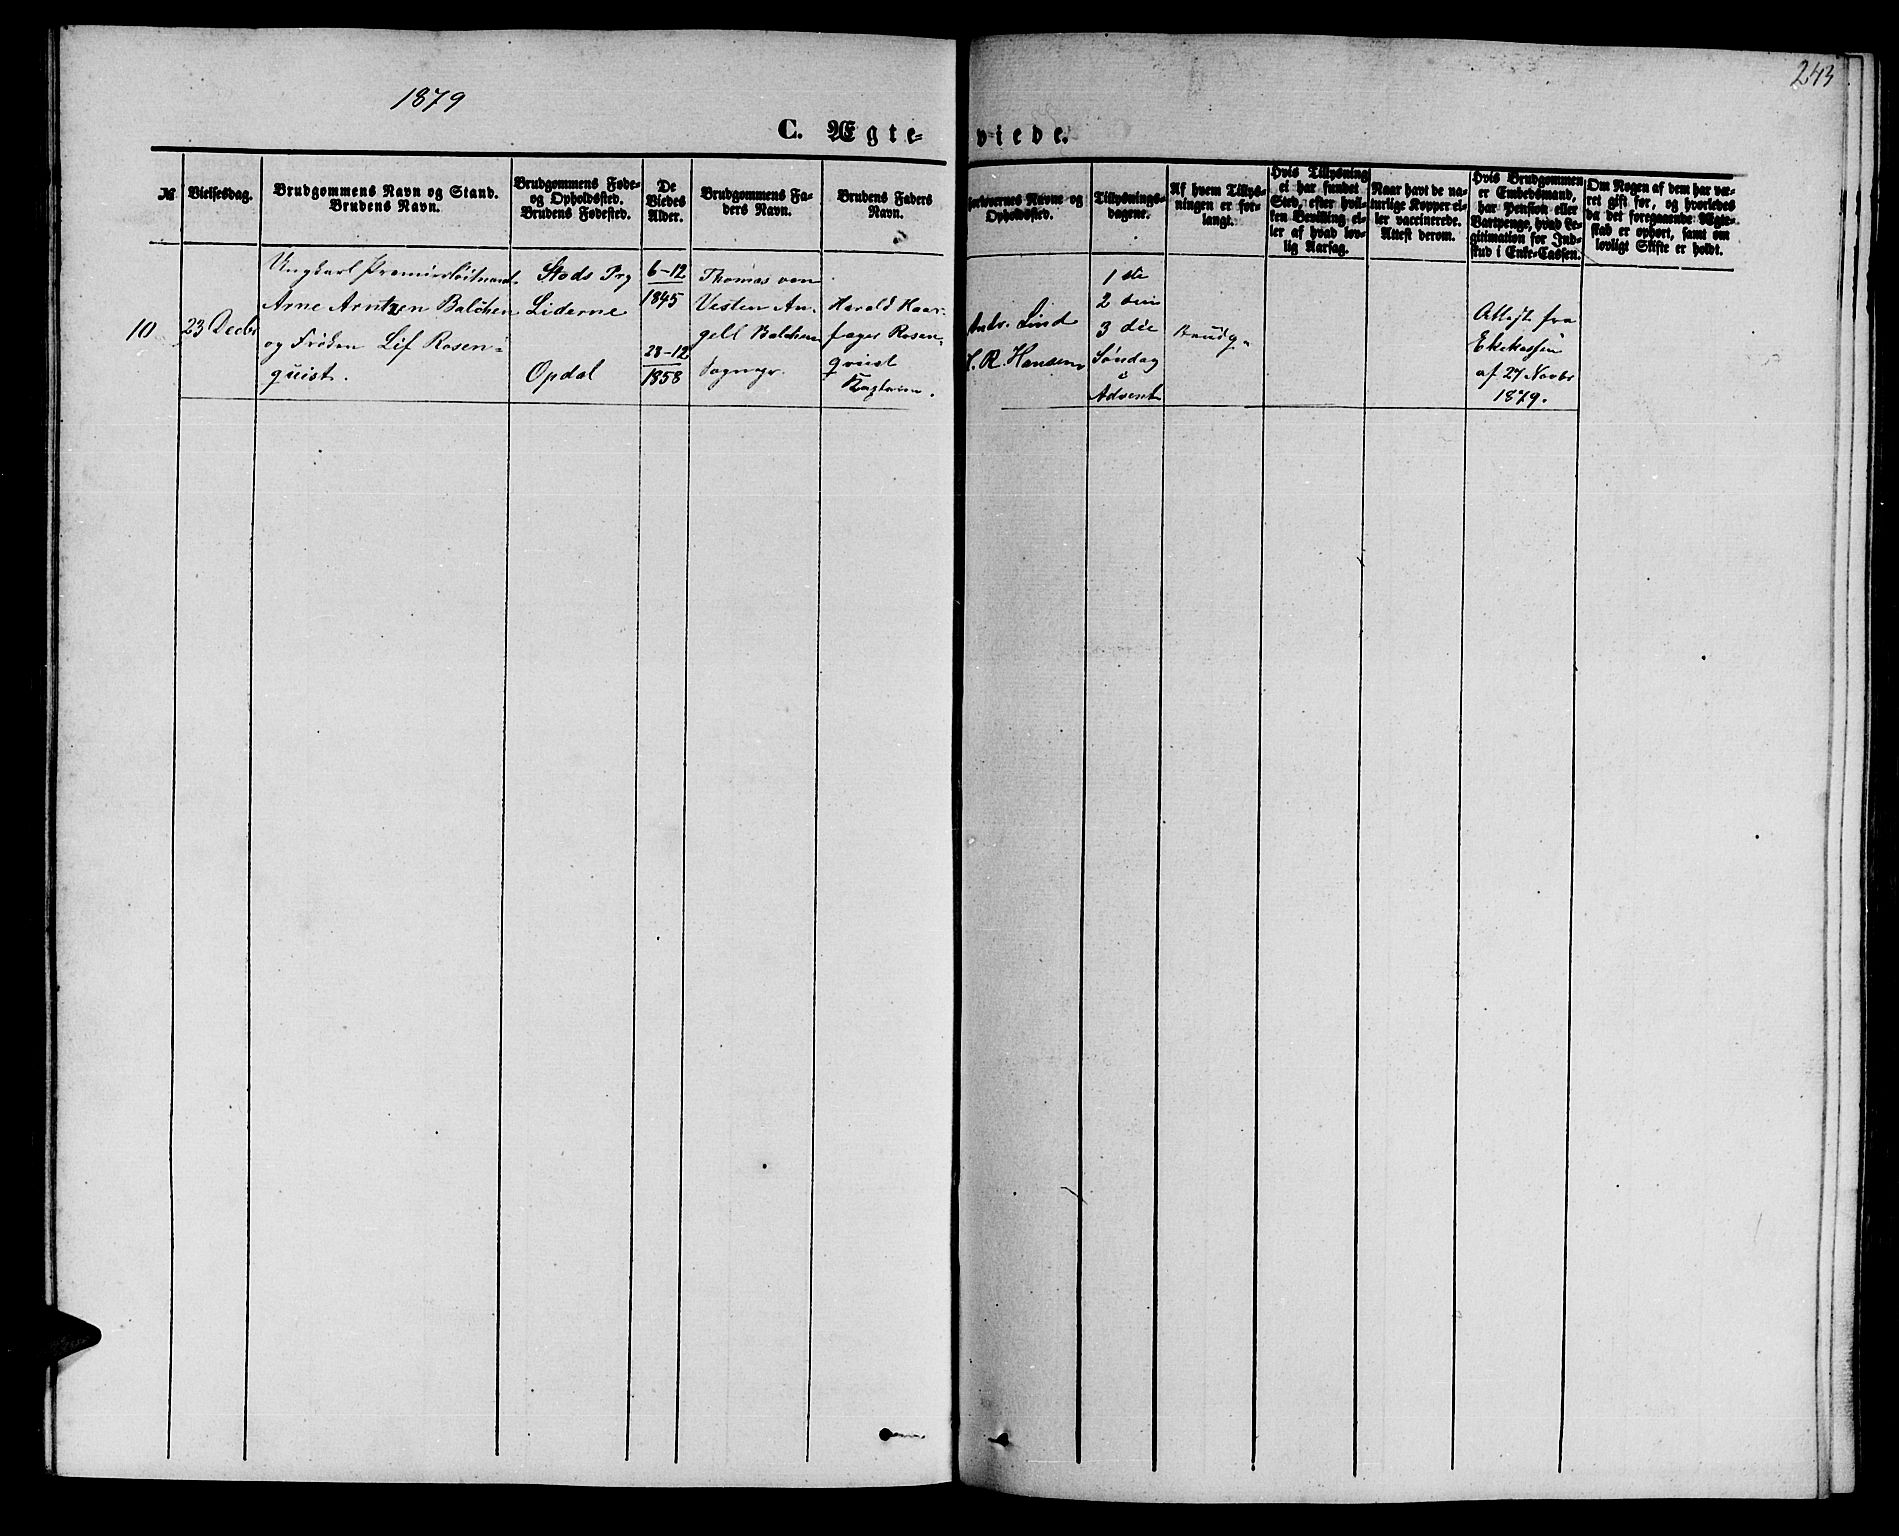 1879
243
C. Ægte-
viede.
№
Vielsesdag.
Brudgommens Navn og Stand.
Brudens Navn.
Brudgommens Føde-
og Opholdssted.
Brudens Fødested.
De
Viedes
Alder.
Brudgommens Fa-
ders Navn.
Brudens Faders
Navn.
Forlovernes Navne og
Opholdssted.
Tillysnings-
dagene.
Af hvem Tillys-
ningen er for-
langt.
Hvis Tillysning
ei har fundet
Sted, efter hvil-
ken Bevilling el-
ler af hvad lov-
lig Aarsag.
Naar havt de na-
turlige Kopper el-
ler vaccinerede.
Attest derom.
Hvis Brudgommen
er Embedsmand,
har Pension eller
Vartpenge, hvad Le-
gitimation for Ind-
skud i Enke-Cassen.
Om Nogen af dem har væ-
ret gift før, og hvorledes
da det foregaaende Ægte-
skab er ophørt, samt om
lovligt Skifte er holdt.
10
23 Decbr
Ungkarl Premierløitnant
Arne Arntzen Balchen
og Frøken Lif Rosen-
quist.
Stods Prg
Liderne
Opdal
6-12
1845
28-12
1858
Thomas von
Vesten An-
gell Balchen
Sognepr.
Harald Haar-
fager Rosen-
qvist
Andr. Lind
H. R. Hansen
1ste
2den
3die
Søndag
i
Advent
Brudg.
Attest fra
Ekekassen
af 27 Novbr
1879.